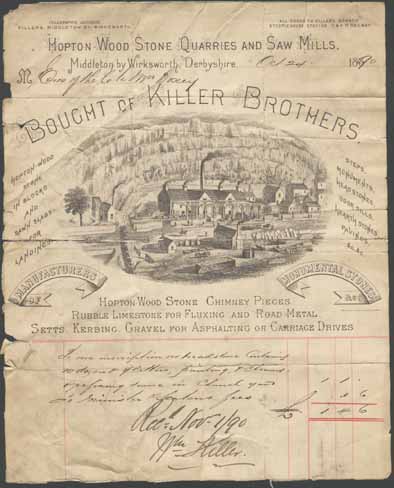 TELEGRAPHIC ADDRESS
KILLERS, MIDDLETON BY WIRKSWORTH.
ALL GOODS TO KILLERS SIDING
STEEPLEHOUSE STATION
HOPTON-WOOD STONE QUARRIES AND SAW MILLS,
Middleton by Wirksworth, Derbyshire, Oct 24 1890
M Exors of the late Mrs
BOUGHT OF KILLER BROTHERS
HOPTON-WOOD
STONE
IN BLOCKS
AND
SAWN SLABS
FOR
LANDINGS
STEPS
MONUMENTS
HEADSTONES
DOOR SILLS
HEARTH STONES
PAVINGS
&c. &c.
MANUFACTURERS
OF
MONUMENTAL STONES
&c.
HOPTON-WOOD STONE CHIMNEY PIECES
RUBBLE LIMESTONE FOR FLUXING AND ROAD METAL
SETTS, KERBING, GRAVEL FOR ASPHALTING OR CARRIAGE DRIVES
To one inscription on headstone
letters, painting
same in Church yard
fees
£ 1 4 6
Recd Nov 1/90
Wm Killer.